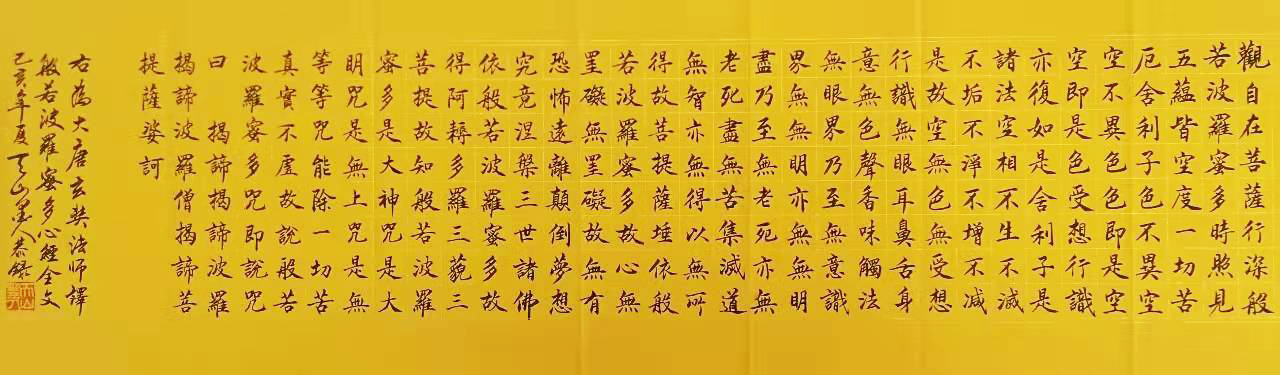 觀自在菩薩行深般
若波羅蜜多時照見
五蘊皆空度一切苦
厄舍利子色不異空
空不異色色即是空
空即是色受想行識
亦復如是舍利子是
諸法空相不生不滅
不垢不淨不增不減
是故空無色無受想
行識無眼耳鼻舌身
意無色聲香味觸法
無眼界乃至無意識
界無無明亦無無明
盡乃至無老死亦無
老死盡無苦集滅道
無智亦無得以無所
得故菩提薩埵依般
若波羅蜜多故心無
罣礙無罣礙故無有
恐怖遠離顛倒夢想
究竟涅槃三世諸佛
依般若波羅蜜多故
得阿耨多羅三藐三
菩提故知般若波羅
蜜多是大神咒是大
明咒是無上咒是無
等等咒能除一切苦
真實不虛故說般若
波羅蜜多咒即說咒
曰 揭諦揭諦波羅
揭諦波羅僧揭諦菩
提薩婆訶
右為大唐玄奘法師譯
般若波羅蜜多心經全文
己亥年夏天山墨人恭錄